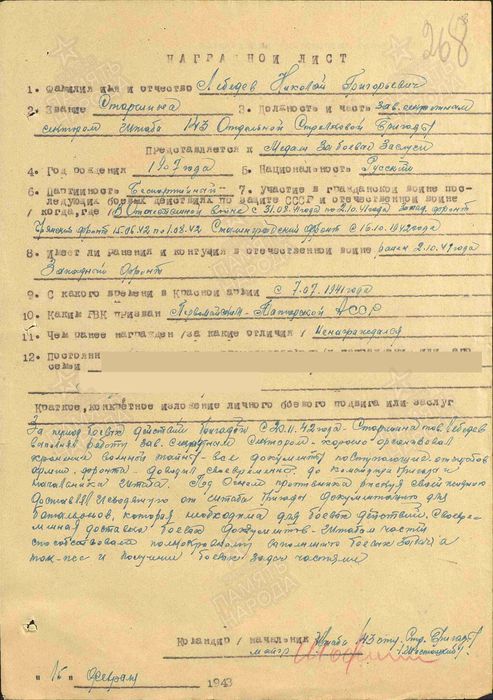 268
НАГРАДНОЙ ЛИСТ
1. Фамилия имя и отчество Лебедев Николай Григорьевич
2. Звание Старшина 3. Должность и часть зав. секретным
сектором Штаба 143 Отдельной Стрелковой Бригады
Представляется к Медали За боевые Заслуги
4. Год рождения 1907 года 5. Национальность Русский
6. Партийность Беспартийный 7. Участие в гражданской войне пос-
ледующих боевых действиях по защите СССР и отечественной войне
/когда, где/ В Отечественной войне с 31.08.41 года по 2.10.41 года Запад. фронт
Брянский фронт 15.06.42 по 1.08.42 Сталинградский фронт с 16.10.1942 года
8. Имеет ли ранения и контузии в отечественной войне ранен 2.10.41 года
Западный фронт
9. С какого времени в Красной армии с 7.07.1941 года
10. Каким РВК призван Первомайским - Татарской АССР
11. Чем ранее награжден /за какие отличия/ Ненаграждался
12. Постоянн
семьи
Краткое, конкретное изложение личного боевого подвига или заслуг
За период боевых действий бригады с 20.11.42 года Старшина тов. Лебедев
выполняя работу зав. секретным сектором - хорошо организовал
хранение военной тайны - все документы поступающие от штабов
армии, фронта - доводил своевременно до командира бригады и
начальника штаба. Под огнем противника рискуя своей жизнью
доставлял исходящую от штаба бригады документацию для
батальонов, которая необходима для боевых действий. Своевре-
менная доставка боевых документов - штабам частей
способствовала выполнению боевых задач
и получении боевых задач частями
Командир /начальник Штаба 143 отд. Стр. Бригады
майор
"16" Февраля 1943
ПАМЯТЬ НАРОДА